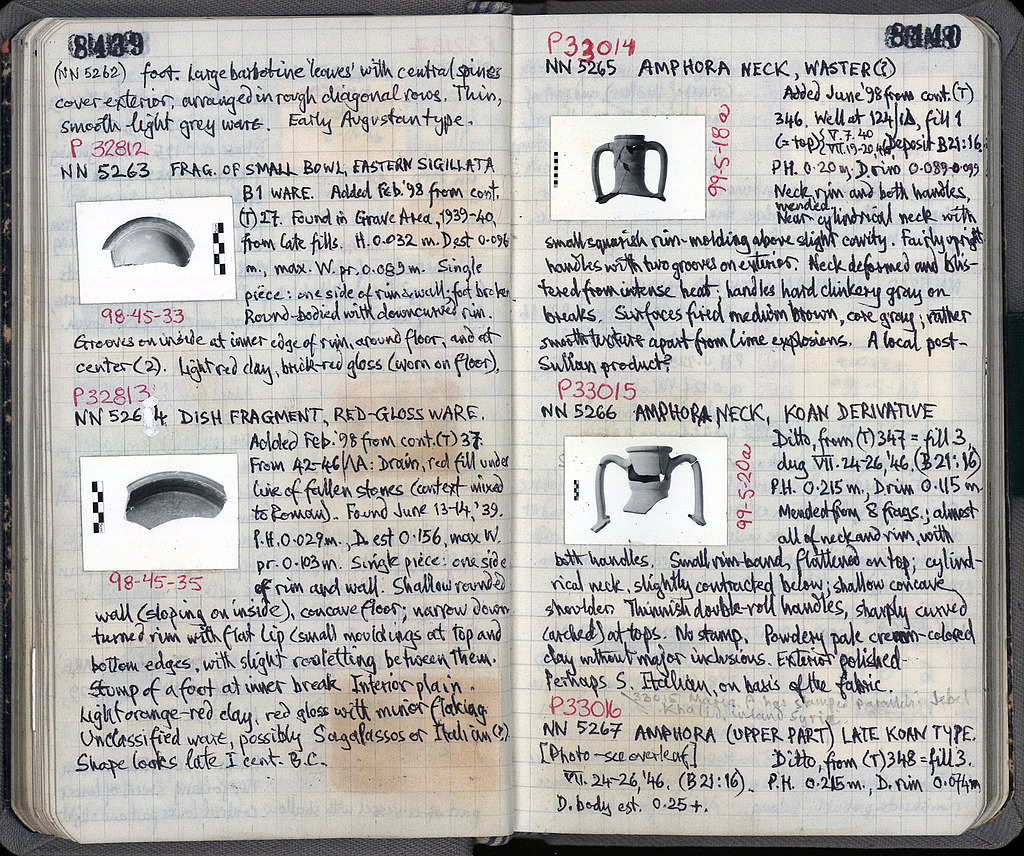 8439
(NN 5262) foot. Large barbotine 'leaves' with central spines
cover exterior, arranged in rough diagonal rows. Thin,
smooth light grey ware. Early Augustan type.
P 32812
NN 5263 FRAG. OF SMALL BOWL, EASTERN SIGILLATA
B1 WARE. Added Feb.'98 from cont.
(T) 27. Found in Grave Area, 1939-40,
from late fills. H. 0.032 m. D est 0.096
m., max. W. pr. 0.089 m. Single
piece: one side of rim & wall, foot broken
Round-bodied with downcurved rim.
98-45-33
Grooves on inside at inner edge of rim, around floor, and at
center (2). Light red clay, brick-red gloss (worn on floor).
P32813
NN 5264 DISH FRAGMENT, RED-GLOSS WARE.
Added Feb.'98 from cont. (T) 37.
From 42-46/ΛA: Drain, red fill under
line of fallen stones (context mixed
to Roman). Found June 13-14, '39.
P.H. 0.029 m., D. est 0.156, max W.
pr. 0.103 m. Single piece: one side
of rim and wall. Shallow rounded
98-45-35
wall (sloping on inside), concave floor; narrow down
turned rim with flat lip (small mouldings at top and
bottom edges, with slight rouletting between them.
Stump of a foot at inner break Interior plain.
Light orange-red clay, red gloss with minor flaking
Unclassified ware, possibly Sagalassos or Italian (?).
Shape looks late I cent. B.C.
8440
P33014
NN 5265 AMPHORA NECK, WASTER (?)
Added June '98 from cont. (T)
346. Well at 124/ΙΔ, fill 1
(= top) {V.7.40 VII.19-20, Deposit B21:16
P.H. 0.20 m, D. rim 0.089-0.099
Neck, rim and both handles,
mended
Near cylindrical neck with
99-5-18a
small squarish rim-molding above slight cavity. Fairly upright
handles with two grooves on exterior. Neck deformed and blis-
tered from intense heat; handles hard clinkery gray on
breaks. Surfaces fired medium brown, core gray; rather
smooth texture apart from lime explosions. A local post-
Sullan product?
P33015
NN 5266 AMPHORA NECK, KOAN DERIVATIVE
Ditto, from (T) 347 = fill 3,
dug VII.24-26,'46. (B 21:16)
P.H. 0.215 m, D rim 0.115 m
Mended from 8 frags.; almost
all of neck and rim, with
99-5-20a
both handles. Small rim-band, flattened on top; cylind-
rical neck, slightly contracted below; shallow concave
shoulder. Thinnish double-roll handles, sharply curved
(arched) at tops. No stamp. Powdery pale cream-colored
clay without major inclusions. Exterior polished-
Perhaps S. Italian, on basis of the fabric.
33015 has stamped parallel: Jebel
Khalid, inland Syria.
P33016
NN 5267 AMPHORA (UPPER PART) LATE KOAN TYPE.
[Photo - see overleaf] Ditto, from (T) 348 = fill 3.
VII.24-26,'46. (B 21:16). P.H. 0.215 m, D. rim 0.074m
D. body est. 0.25+.